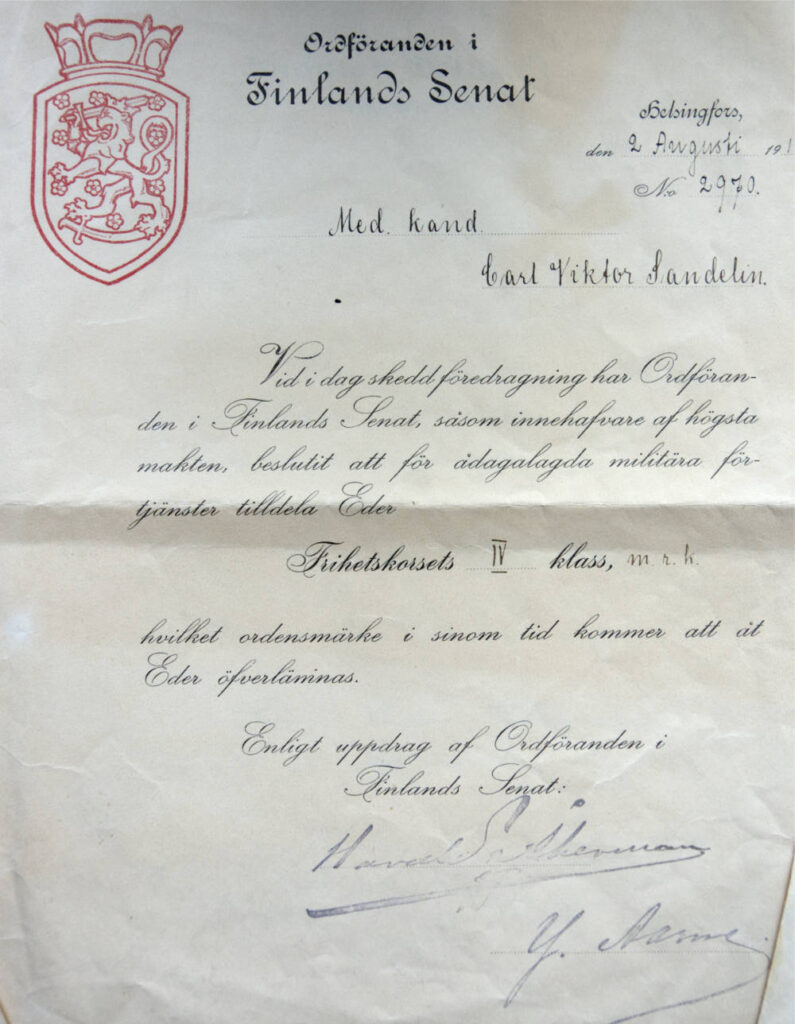 Ordföranden i
Finlands Senat
Helsingfors,
den 2 Augusti 191
No 2970.
Med. kand.
Carl Viktor Sandelin.
Vid i dag skedd föredragning har Ordföran-
den i Finlands Senat, såsom innehafvare af högsta
makten, beslutit att för ådagalagda militära för-
tjänster tilldela Eder
Frihetskorsets IV klass, m. r. k.
hvilket ordensmärke i sinom tid kommer att åt
Eder öfverlämnas.
Enligt uppdrag af Ordföranden i
Finlands Senat:
Harald Åkerman
Y. Aarne